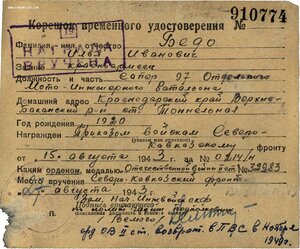 910774
Корешок временного удостоверения №
Фамилия, имя, отчество Бедо
Илья Иванович
НАГРАДА
ВРУЧЕНА
Звание красноармеец
Должность и часть Сапер 97 Отдельного
Мото-Инженерного Батальона
Домашний адрес Краснодарский край Верхне-
Баканский р-н ст. Тоннельная
Год рождения 1920
Награжден Приказом войскам Северо-
Кавказскому фронту
от 15 августа 1943 г за №
Каким орденом, медалью Отечественной войны II ст № 39983
Место вручения Северо-Кавказский фронт
августа 1943 г.
орд ОВ II ст. возврат. в ПВС в ноябре
1948г.